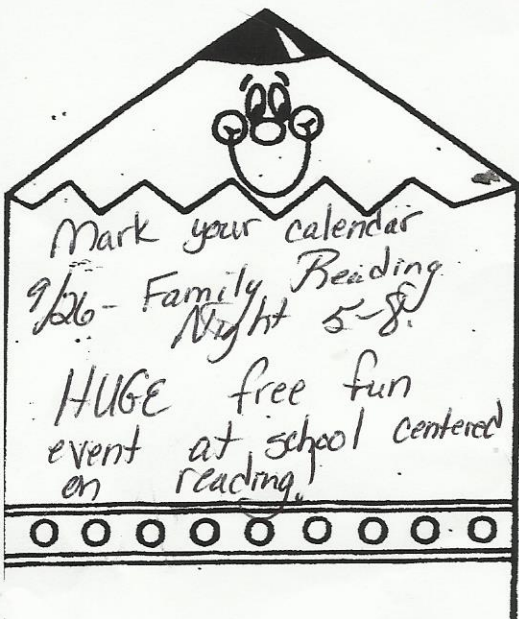 Mark your calendar
9/26- Family Reading
Night 5-8.
HUGE free fun
event at school centered
on reading!